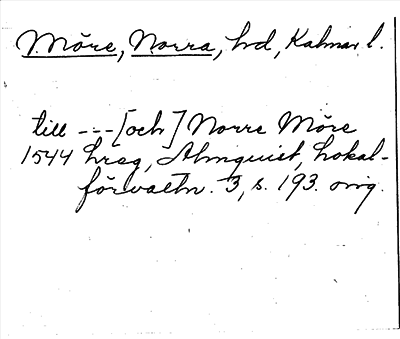 Möre, Norra, hd, Kalmar l.
till --- [och] Norre Möre
1544 hreg, Almquist, Lokal-
förvaltn. 3, s. 193. orig.